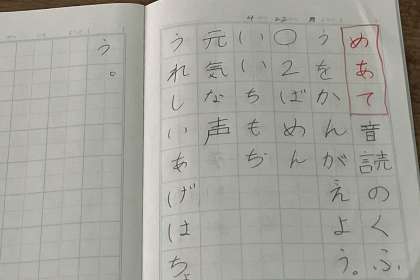 4 22
めあて音読のくふ
うをかんがえよう。
○2ばめん
いいちもち
元気な声
うれしいあげはちょ
う。